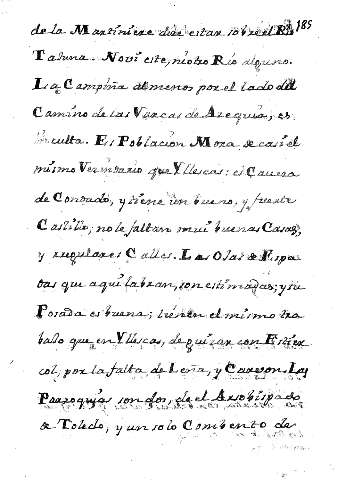 185
de la Martiniere dice estar sobre el Rio
Taduna. No vi este, ni otro Rio alguno.
La Campiña al menos por el lado del
Camino de las Varcas de Azequia, es
inculta. Es Poblacion Mora, de casi el
mismo Vecindario que Yllescas: es Cavera
de Condado, y tiene un bueno, y fuerte
Castillo; no le faltan mui buenas Casas,
y regulares Calles. Las Ojas de Espa
das que aqui labran, son estimadas; y su
Posada es buena; tienen el mismo tra
bajo que en Yllescas, de guisar con Estier
col, por la falta de Leña, y Carvon. Las
Parroquias son dos, de el Arzobispado
de Toledo, y un solo Combento de